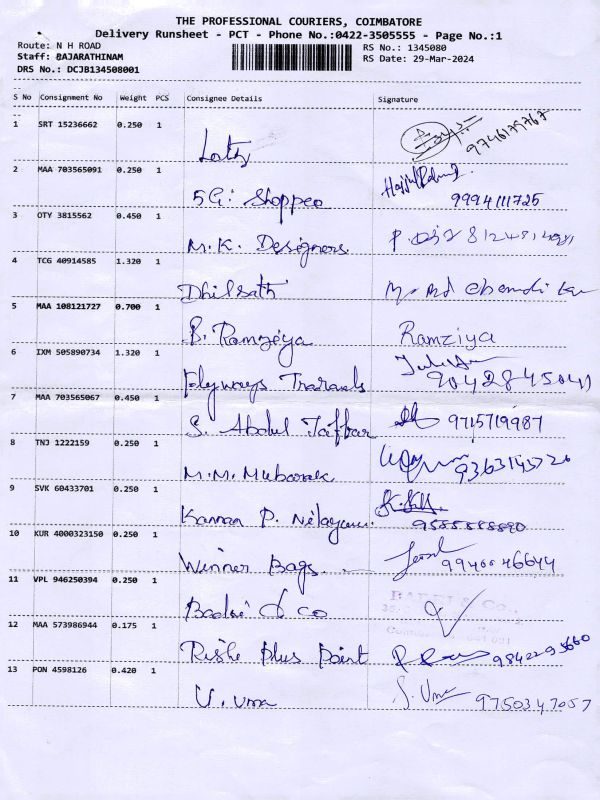 THE PROFESSIONAL COURIERS, COIMBATORE
Delivery Runsheet - PCT - Phone No.:0422-3505555 - Page No.:1
Route: N H ROAD RS No.: 1345080
Staff: RAJARATHINAM RS Date: 29-Mar-2024
DRS No.: DCJB134508001
S No Consignment No Weight PCS Consignee Details Signature
1 SRT 15236662 0.250 1 9746179767
2 MAA 703565091 0.250 1 5G: Shoppee 9994111725
3 OTY 3815562 0.450 1 M.K. Designers
4 TCG 40914585 1.320 1 Dhilsath
5 MAA 108121727 0.700 1 B. Ramziya Ramziya
6 IXM 505890734 1.320 1 Flyways Travels 9042845041
7 MAA 703565067 0.450 1 S. Abdul Jaffar 9715719987
8 TNJ 1222159 0.250 1 M.M. Mubarak
9 SVK 60433701 0.250 1 Kannan P.
10 KUR 4000323150 0.250 1 Winner Bags
11 VPL 946250394 0.250 1 Badri & co
12 MAA 573986944 0.175 1 Plus Point
13 PON 4598126 0.420 1 U. Uma S. Uma 9750347057